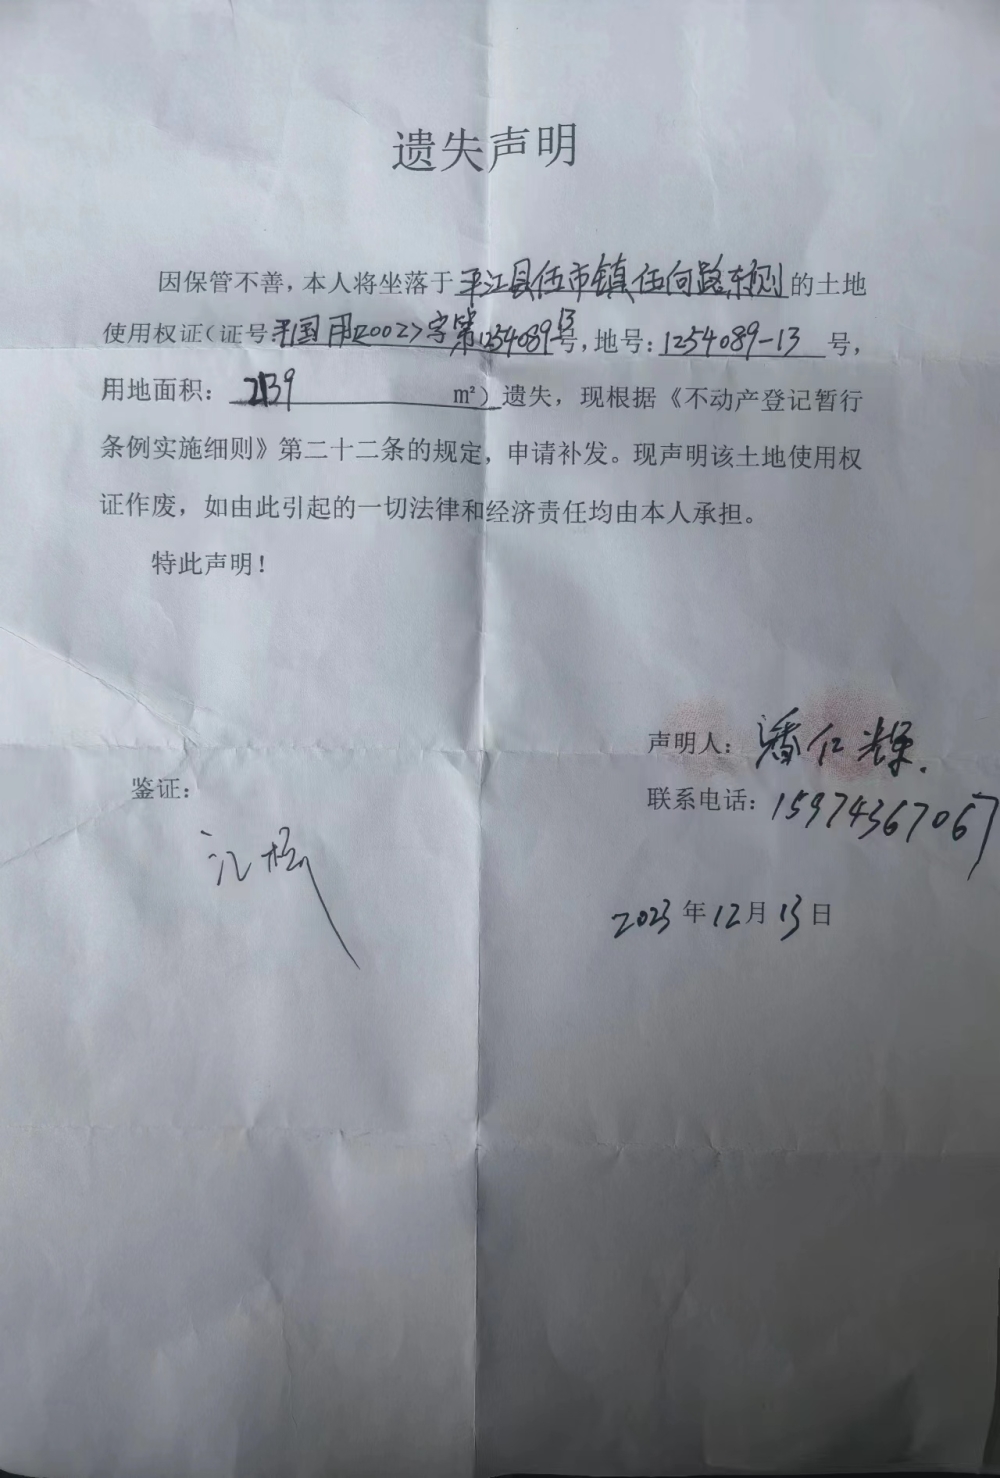 遗失声明
因保管不善，本人将坐落于平江县伍市镇伍向路东侧的土地
使用权证（证号:平国用<2002>字第1254089-13号，地号：1254089-13号，
用地面积：2139m²）遗失，现根据《不动产登记暂行
条例实施细则》第二十二条的规定，申请补发。现声明该土地使用权
证作废，如由此引起的一切法律和经济责任均由本人承担。
特此声明！
声明人：潘仁辉.
鉴证：
联系电话：15974367067
2023年12月13日